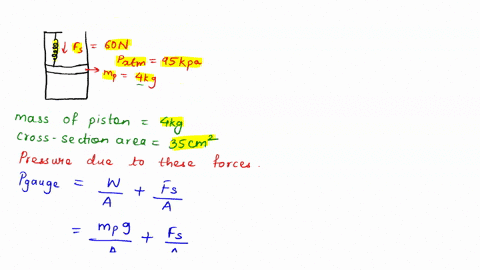 ↓ Fs = 60N
Patm = 95kpa
mp = 4kg
mass of piston = 4kg
cross-section area = 35cm²
Pressure due to these forces.
Pgauge = W/A + Fs/A
= mpg/A + Fs/A